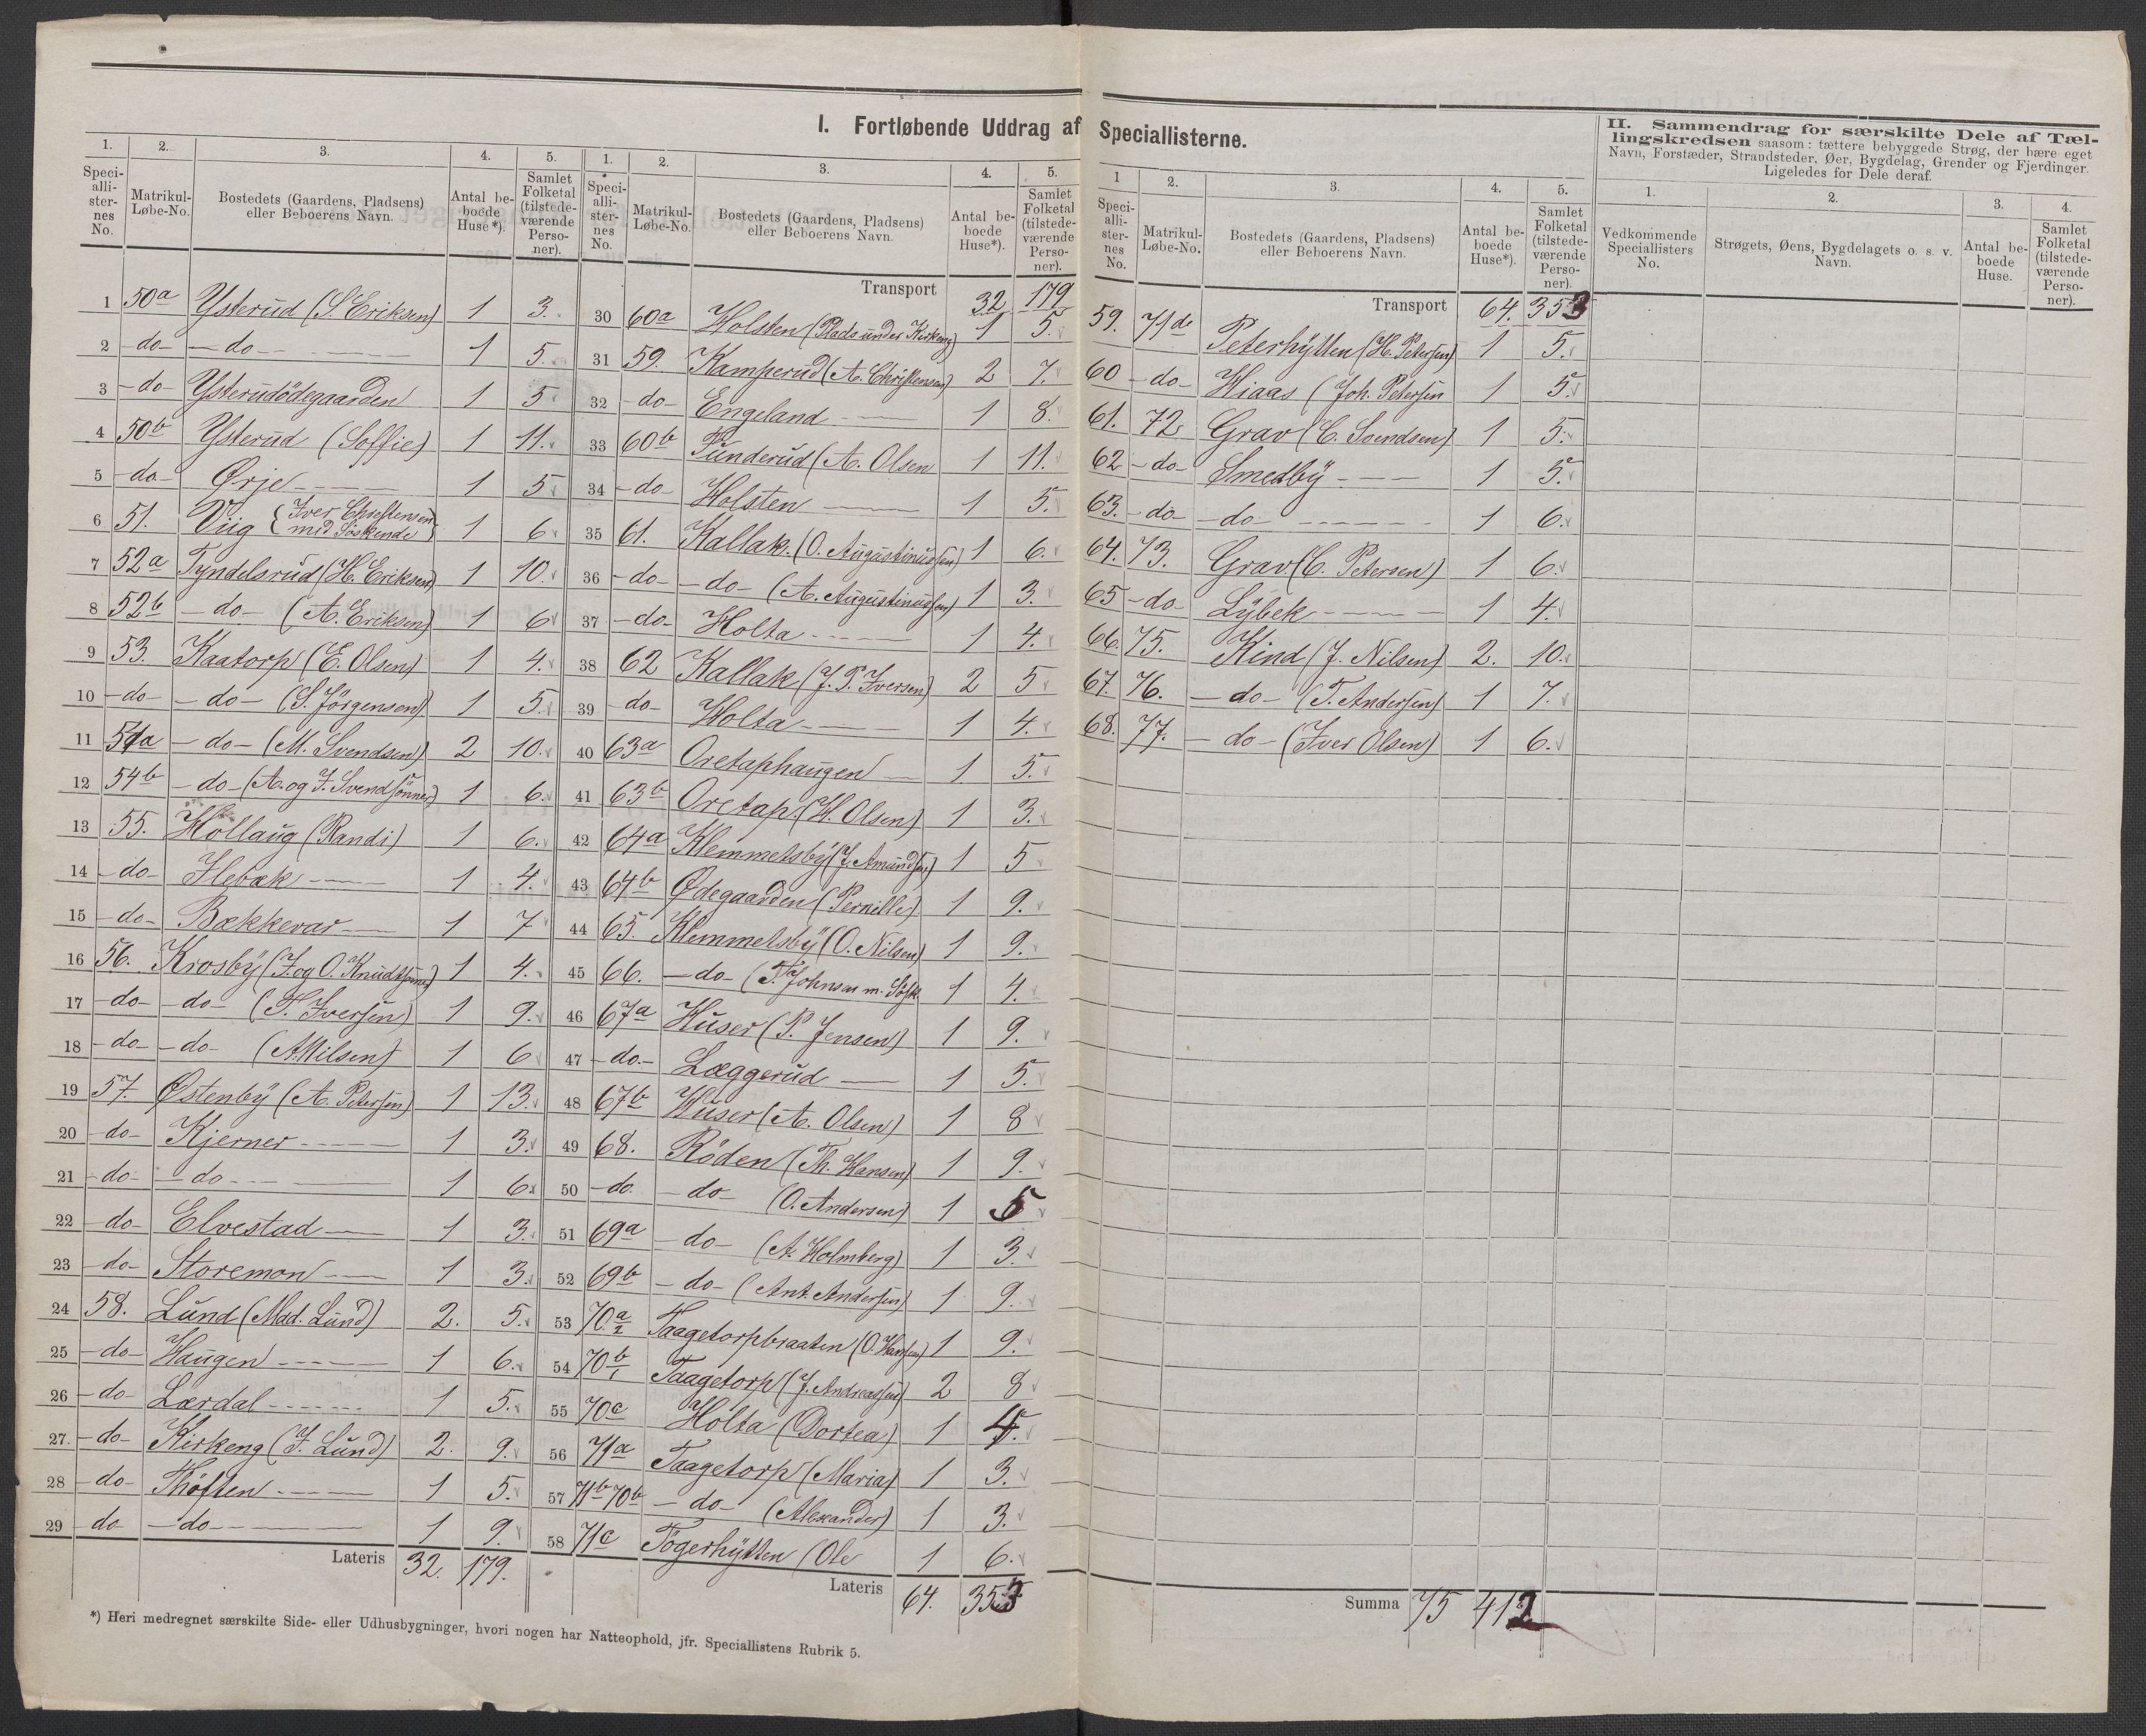 I. Fortløbende Uddrag af Speciallisterne.
1. 2. 3. 4. 5.
Specialli-sternes No. Matrikul-Løbe-No. Bostedets (Gaardens, Pladsens) eller Beboerens Navn. Antal beboede Huse*). Samlet Folketal (tilstedeværende Personer).
1 50a Ysterud (S. Eriksen) 1 3.
2 -do- -do- 1 5.
3 -do- Ysterudödegaarden 1 5
4 50b Ysterud (Soffie) 1 11.
5 -do- Ørje 1 5
6 51. Viig {Iver Christensen med Söskende} 1 6
7 52a Tyndelsrud (H. Eriksen) 1 10.
8 52b -do- (A. Eriksen) 1 6
9 53. Kaatorp (E. Olsen) 1 4.
10 -do- -do- (S. Jörgensen) 1 5.
11 54a -do- (M. Svendsen) 2 10.
12 54b -do- (A. og J. Svendsönner) 1 6.
13 55. Hollaug (Randi) 1 6.
14 -do- Flebæk 1 4.
15 -do- Bækkevar 1 7
16 56. Krosby (J. og O. Knudtsönner) 1 4.
17 -do- -do- (P. Iversen) 1 9.
18 -do- -do- (A. Nilsen) 1 6
19 57. Østenby (A. Petersen) 1 13.
20 -do- Kjerner 1 3.
21 -do- -do- 1 6
22 -do- Elvestad 1 3.
23 -do- Storemon 1 3.
24 58. Lund (Mad. Lund) 2. 5.
25 -do- Haugen 1 6.
26 -do- Lærdal 1 5.
27. -do- Kirkeng (J. Lund) 2. 9.
28 -do- Thöften 1 5.
29 -do- -do- 1 9.
Lateris 32. 179.
*) Heri medregnet særskilte Side- eller Udhusbygninger, hvori nogen har Natteophold, jfr. Speciallistens Rubrik 5.
1. 2. 3. 4. 5.
Specialli-sternes No. Matrikul-Løbe-No. Bostedets (Gaardens, Pladsens) eller Beboerens Navn. Antal beboede Huse*). Samlet Folketal (tilstedeværende Personer).
Transport 32 179
30 60a Holsten (Plads under Kirkeng) 1 5.
31 59. Kamperud (A. Christensen) 2 7.
32 -do- Engeland 1 8.
33 60b Tunderud (A. Olsen 1 11.
34 -do- Holsten 1 5.
35 61. Kallak. (O. Augustinussen) 1 6.
36 -do- -do- (A. Augustinussen) 1 3.
37 -do- Holta 1 4.
38 62 Kallak (J. P. Iversen) 2 5
39 -do- Holta 1 4.
40 63a Oretaphaugen 1 5.
41 63b Oretap. (H. Olsen) 1 3.
42 64a Klemmetsby (J. Amundsen) 1 5
43 64b Ødegaarden (Pernille) 1 9.
44 65. Klemmetsby (O. Nilsen) 1 9.
45 66. -do- (T. Johnsen m. Söfk. 1 4.
46 67a Huser (P. Jensen) 1 9.
47 -do- Læggerud 1 5.
48 67b Huser (A. Olsen) 1 8
49 68. Röden (Th. Hansen) 1 9.
50 -do- -do- (O. Andersen) 1 5
51 69a -do- (A. Holmberg) 1 3.
52 69b -do- (Ant. Andersen) 1 9.
53 70.a/2 Taagetorpbraaten (O. Hansen) 1 9.
54 70b/1 Taagetorp (J. Andreassen) 2 8
55 70c Holta (Dortea) 1 4.
56 71a Taagetorp (Maria) 1 3.
57 71b 70b -do- (Alexander) 1 3.
58 71c Togerhytten (Ole 1 6.
Lateris 64. 353
1 2. 3. 4. 5.
Specialli-sternes No. Matrikul-Løbe-No. Bostedets (Gaardens, Pladsens) eller Beboerens Navn. Antal beboede Huse*). Samlet Folketal (tilstedeværende Personer).
Transport 64. 353
59. 71de Peterhytten (H. Petersen) 1 5.
60 -do- Hiaas (Joh. Petersen 1 5.
61. 72 Grav (C. Svendsen) 1 5.
62 -do- Smedby 1 5.
63. -do- -do- 1 6.
64. 73. Grav. (C. Petersen) 1 6.
65 -do- Lybek 1 4.
66. 75. Kind (J. Nilsen) 2. 10.
67. 76. -do- (T. Andersen) 1 7.
68. 77. -do- (Iver Olsen) 1 6.
Summa 75 412
II. Sammendrag for særskilte Dele af Tællingskredsen saasom: tættere bebyggede Strøg, der bære eget Navn, Forstæder, Strandsteder, Øer, Bygdelag, Grender og Fjerdinger. Ligeledes for Dele deraf.
1. 2. 3. 4.
Vedkommende Speciallisters No. Strøgets, Øens, Bygdelagets o. s. v. Navn. Antal beboede Huse. Samlet Folketal (tilstedeværende Personer).